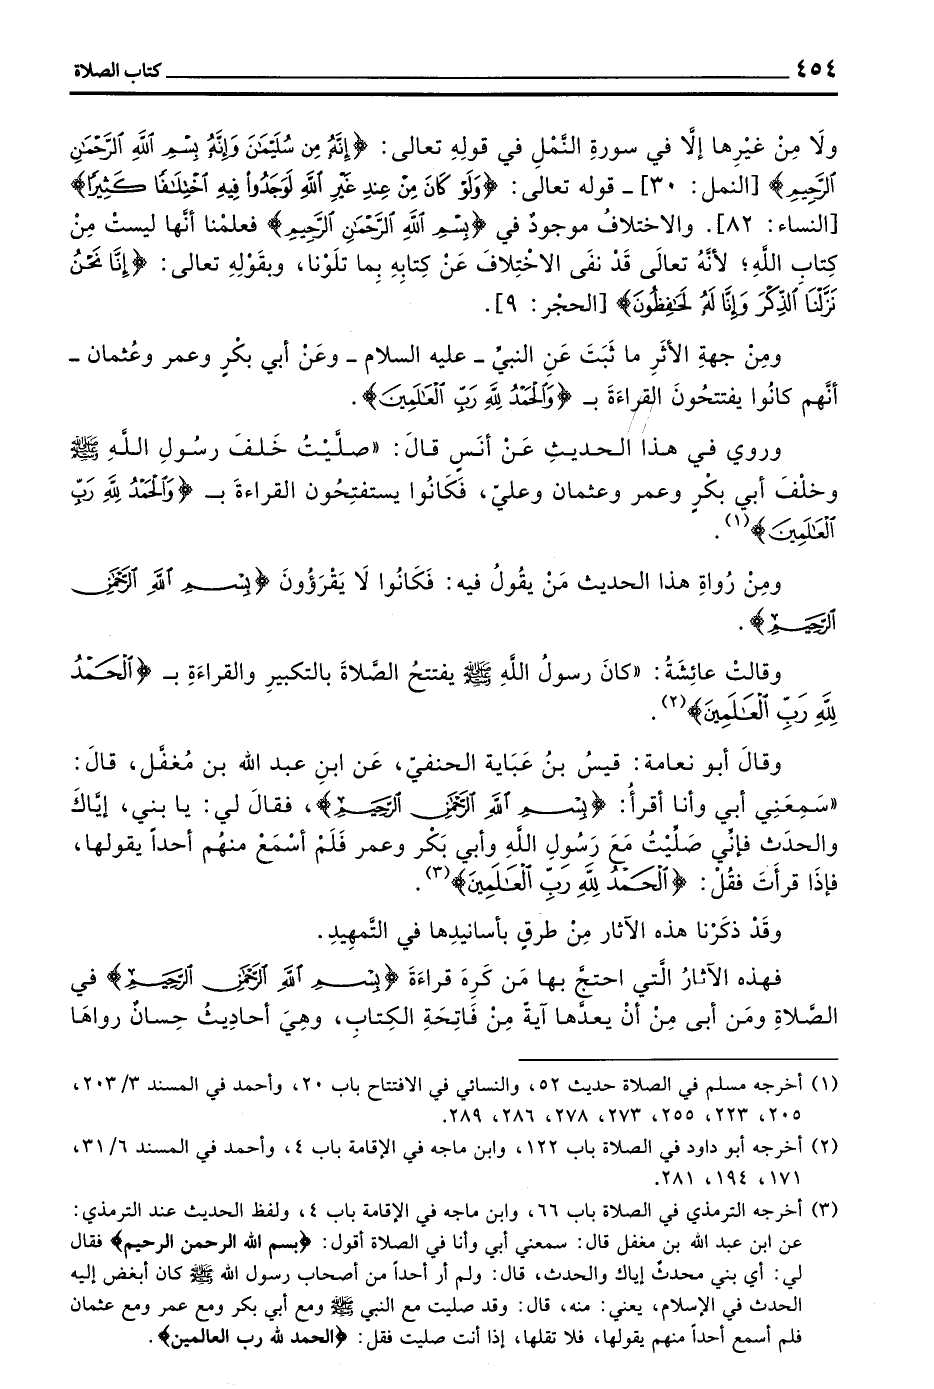 ٤٥٤ كتاب الصلاة
ولَا مِنْ غيْرِها إلَّا في سورةِ النَّمْلِ في قولِهِ تعالى: ﴿إِنَّهُ مِن سُلَيْمَٰنَ وَإِنَّهُ بِسْمِ ٱللَّهِ ٱلرَّحْمَٰنِ
ٱلرَّحِيمِ﴾ [النمل: ٣٠] ـ قوله تعالى: ﴿وَلَوْ كَانَ مِنْ عِندِ غَيْرِ ٱللَّهِ لَوَجَدُوا۟ فِيهِ ٱخْتِلَٰفًا كَثِيرًا﴾
[النساء: ٨٢]. والاختلافُ موجودٌ في ﴿بِسْمِ ٱللَّهِ ٱلرَّحْمَٰنِ ٱلرَّحِيمِ﴾ فعلمْنا أنَّها ليستْ مِنْ
كتابِ اللَّهِ؛ لأنَّهُ تعالَى قَدْ نفَى الاخْتِلافَ عَنْ كتابِهِ بِما تلَوْنا، وبقَوْلِهِ تعالى: ﴿إِنَّا نَحْنُ
نَزَّلْنَا ٱلذِّكْرَ وَإِنَّا لَهُ لَحَٰفِظُونَ﴾ [الحجْر: ٩].
ومِنْ جهةِ الأثَرِ ما ثبَتَ عَنِ النبيِّ ـ عليه السلام ـ وعَنْ أبي بكْرٍ وعمر وعُثمان ـ
أنَّهم كانُوا يفتتحُونَ القراءَةَ بـ ﴿وَٱلْحَمْدُ لِلَّهِ رَبِّ ٱلْعَٰلَمِينَ﴾.
وروي في هذا الحديثِ عَنْ أنَسٍ قالَ: «صلَّيْتُ خَلفَ رسُولِ اللَّهِ ﷺ
وخلْفَ أبي بكْرٍ وعمر وعثمان وعليّ، فكَانُوا يستفتِحُون القراءةَ بـ ﴿وَٱلْحَمْدُ لِلَّهِ رَبِّ
ٱلْعَٰلَمِينَ﴾(١).
ومِنْ رُواةِ هذا الحديث مَنْ يقُولُ فيه: فَكَانُوا لَا يَقْرَؤُونَ ﴿بِسْمِ ٱللَّهِ ٱلرَّحْمَٰنِ
ٱلرَّحِيمِ﴾.
وقالتْ عائِشَةُ: «كانَ رسولُ اللَّهِ ﷺ يفتتحُ الصَّلاةَ بالتكبيرِ والقراءَةِ بـ ﴿ٱلْحَمْدُ
لِلَّهِ رَبِّ ٱلْعَٰلَمِينَ﴾(٢).
وقالَ أبو نعامة: قيسُ بنُ عَبَاية الحنفيّ، عَن ابنِ عبد الله بن مُغفَّل، قالَ:
«سَمِعَنِي أبي وأنا أقرأُ: ﴿بِسْمِ ٱللَّهِ ٱلرَّحْمَٰنِ ٱلرَّحِيمِ﴾، فقالَ لي: يا بني، إيَّاكَ
والحدَث فإنِّي صَلَّيْتُ مَعَ رَسُولِ اللَّهِ وأبي بَكْر وعمر فَلَمْ أسْمَعْ منهُم أحداً يقولها،
فإذَا قرأتَ فقُلْ: ﴿ٱلْحَمْدُ لِلَّهِ رَبِّ ٱلْعَٰلَمِينَ﴾(٣).
وقَدْ ذكَرْنا هذه الآثار مِنْ طرقٍ بأسانيدِها في التَّمهِيدِ.
فهذه الآثارُ الَّتي احتجَّ بها مَن كَرِهَ قراءَةَ ﴿بِسْمِ ٱللَّهِ ٱلرَّحْمَٰنِ ٱلرَّحِيمِ﴾ في
الصَّلاةِ ومَن أبى مِنْ أنْ يعدَّها آيةً مِنْ فَاتِحَةِ الكتابِ، وهِيَ أحاديثُ حِسانٌ رواهَا
(١) أخرجه مسلم في الصلاة حديث ٥٢، والنسائي في الافتتاح باب ٢٠، وأحمد في المسند ٢٠٣/٣،
٢٠٥، ٢٢٣، ٢٥٥، ٢٧٣، ٢٧٨، ٢٨٦، ٢٨٩.
(٢) أخرجه أبو داود في الصلاة باب ١٢٢، وابن ماجه في الإقامة باب ٤، وأحمد في المسند ٣١/٦،
١٧١، ١٩٤، ٢٨١.
(٣) أخرجه الترمذي في الصلاة باب ٦٦، وابن ماجه في الإقامة باب ٤، ولفظ الحديث عند الترمذي:
عن ابن عبد الله بن مغفل قال: سمعني أبي وأنا في الصلاة أقول: ﴿بسم الله الرحمن الرحيم﴾ فقال
لي: أي بني محدثٌ إياك والحدث، قال: ولم أر أحداً من أصحاب رسول الله ﷺ كان أبغض إليه
الحدث في الإسلام، يعني: منه، قال: وقد صليت مع النبي ﷺ ومع أبي بكر ومع عمر ومع عثمان
فلم أسمع أحداً منهم يقولها، فلا تقلها، إذا أنت صليت فقل: ﴿الحمد لله رب العالمين﴾.